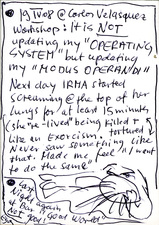 19 IV 08 @ Carlos Velasquez
Workshop: It is NOT
updating my "OPERATING
SYSTEM" but updating
my "MODUS OPERANDI"
Next day IRMA started
screaming @ the top of her
lungs for at least 15 minutes,
(she "re-lived" being killed +
tortured
like an Exorcism.
Never saw something like
that. Made me feel "I want
to do the same"
again
Good